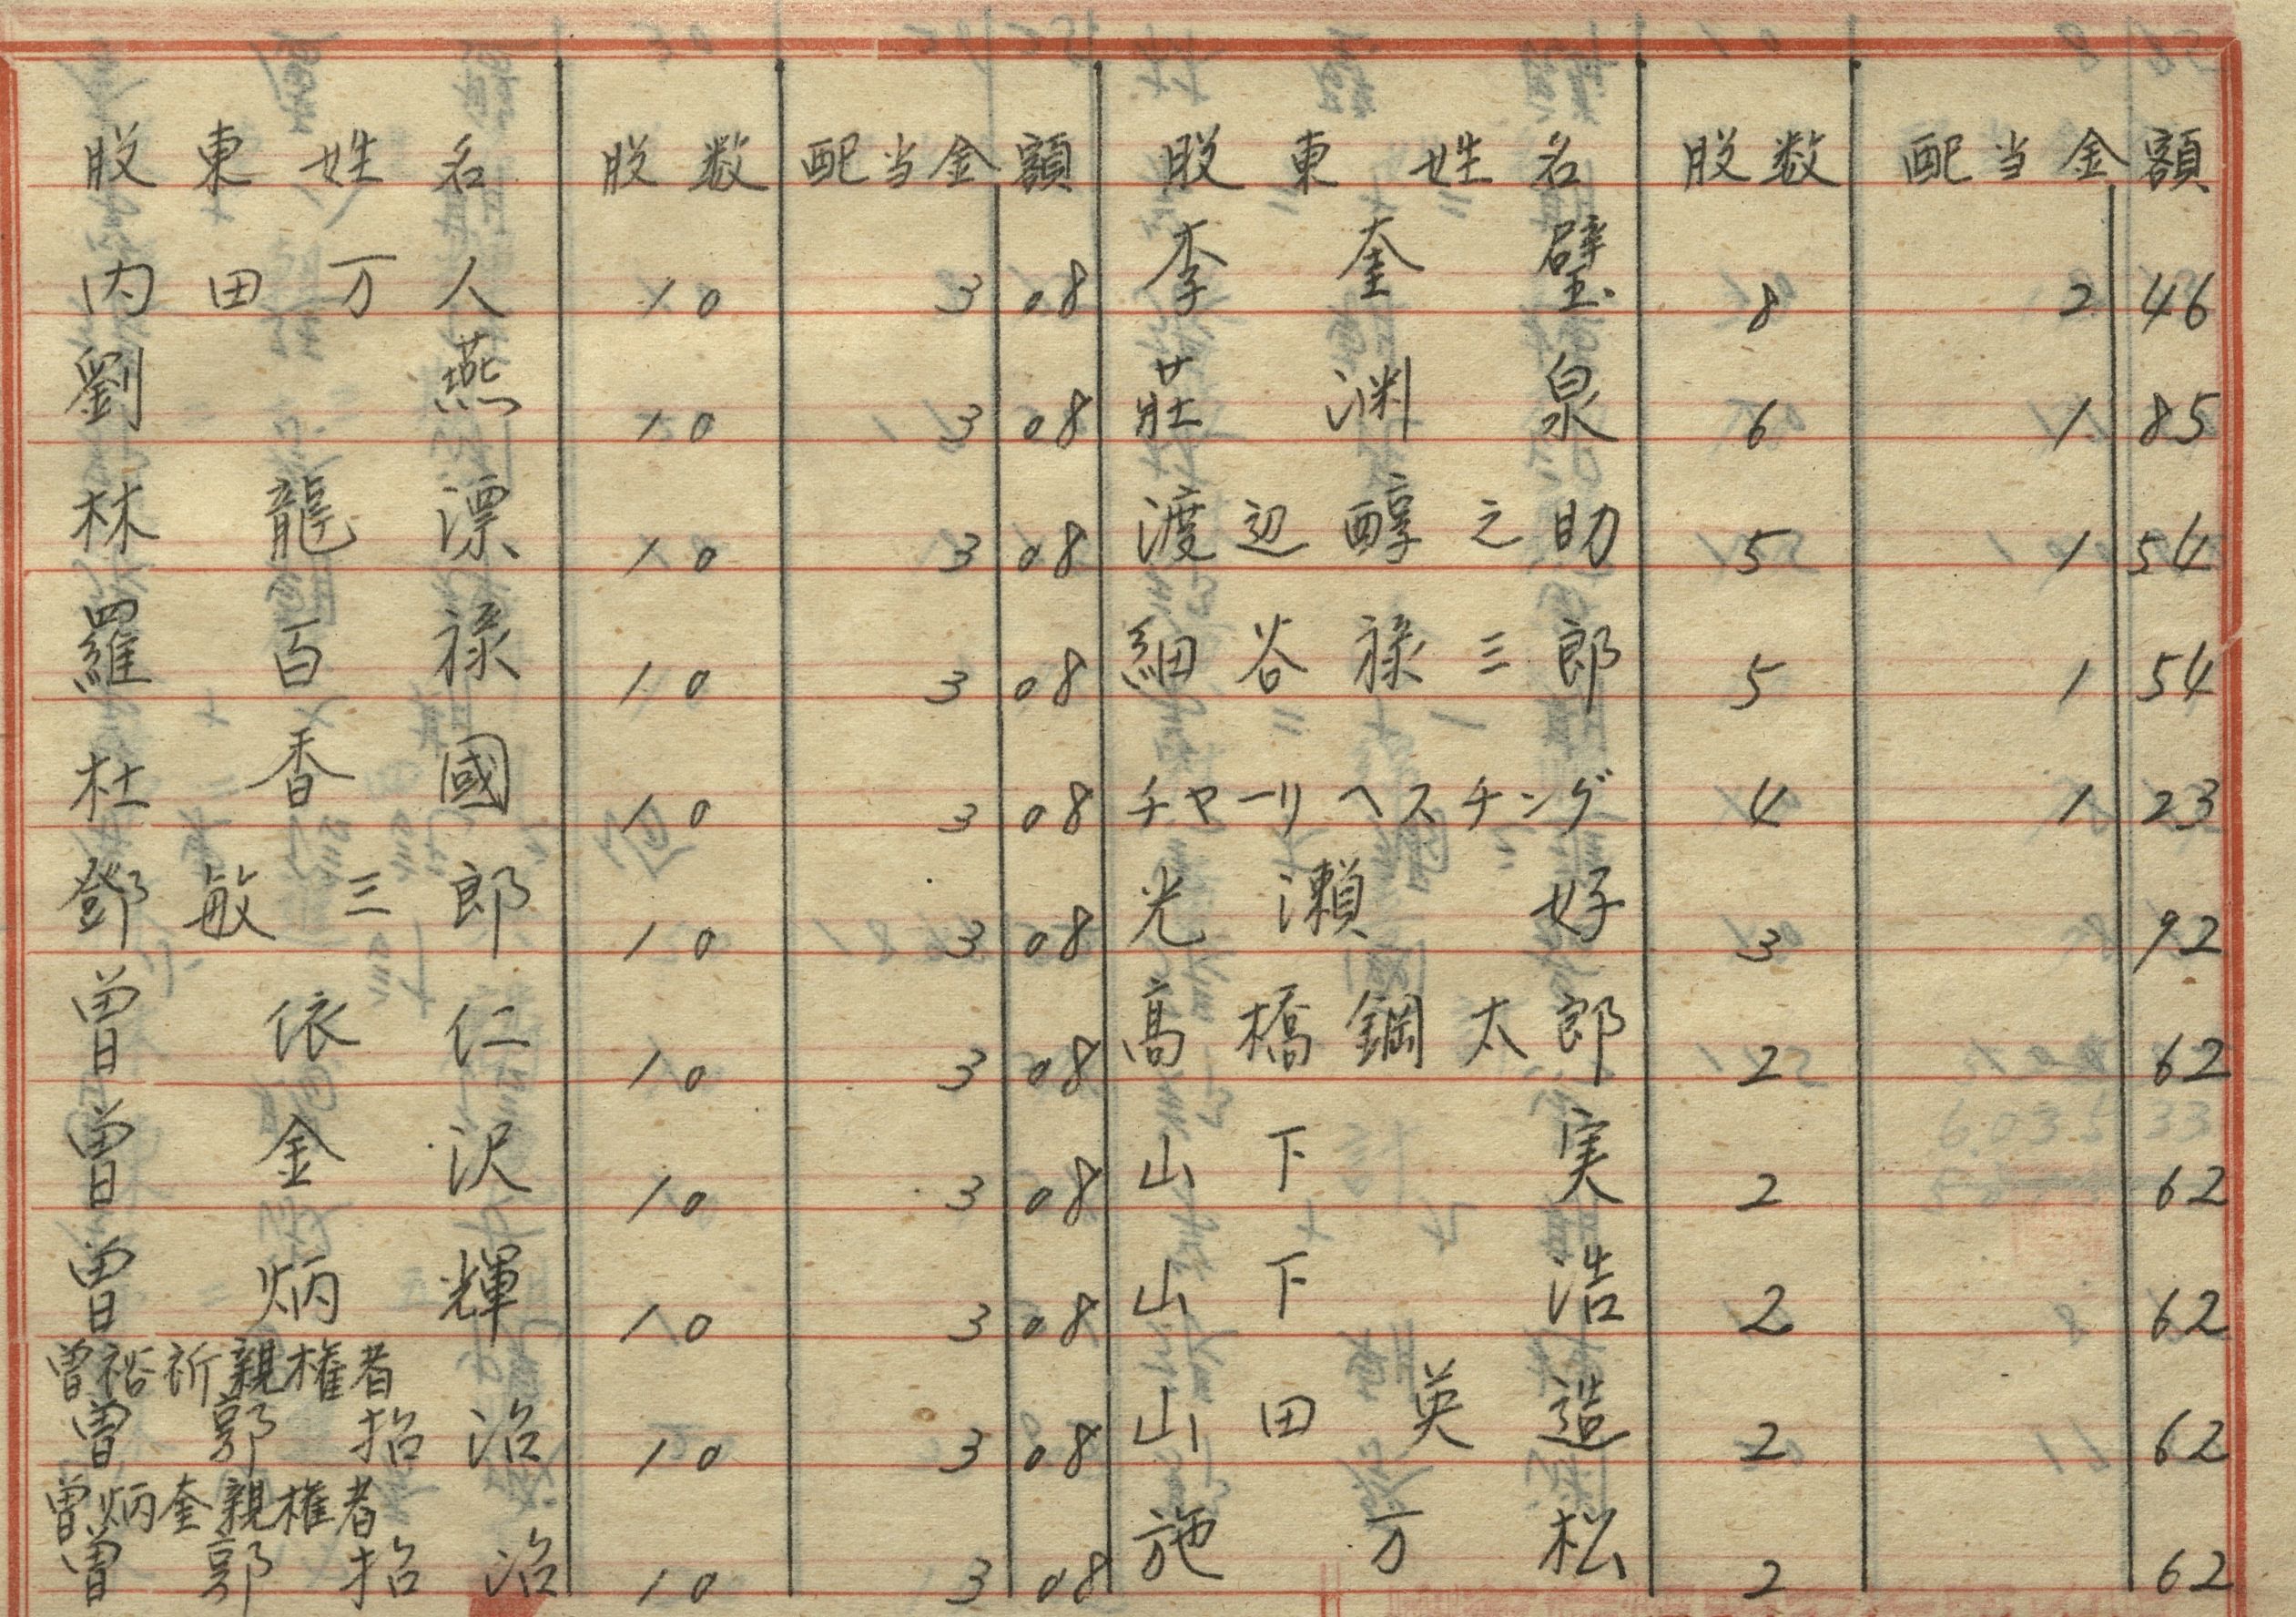 股東姓名 股数 配当金額 股東姓名 股数 配当金額
内田万人 10 3 08 李奎璧 8 2 46
劉燕 10 3 08 莊渊泉 6 1 85
林龍漂 10 3 08 渡辺醇之助 5 1 54
羅百禄 10 3 08 細谷禄三郎 5 1 54
杜香國 10 3 08 チャーリヘスチング 4 1 23
鄧敏三郎 10 3 08 光瀬好 3 92
曽依仁 10 3 08 高橋鋼太郎 2 62
曽金沢 10 3 08 山下実 2 62
曽炳輝 10 3 08 山下浩 2 62
曽裕祈親権者
曽郭招治 10 3 08 山田英造 2 62
曽炳奎親権者
曽郭招治 10 3 08 施万松 2 62